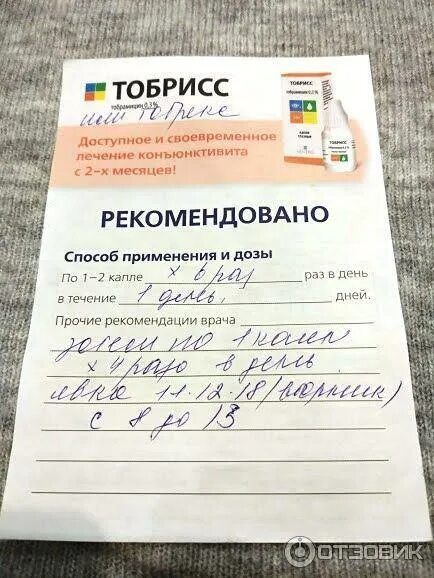 ТОБРИСС
тобрамицин 0,3%
или Тобрекс
Доступное и своевременное
лечение конъюнктивита
с 2-х месяцев!
ТОБРИСС
тобрамицин 0,3%
ТОБРИСС
РЕКОМЕНДОВАНО
Способ применения и дозы
По 1–2 капле х 6 раз раз в день
в течение 1 день, дней.
Прочие рекомендации врача
затем по 1 капл
х 4 раза в день
явка 11.12.18 (вторник)
с 8 до 13
ОТЗОВИК